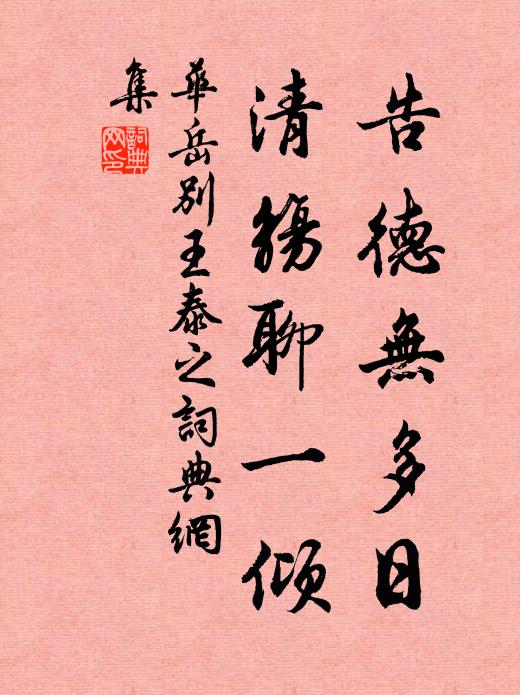 告德無多日
清觴聊一傾
華岳別王泰之詞典網
集
詞典网印